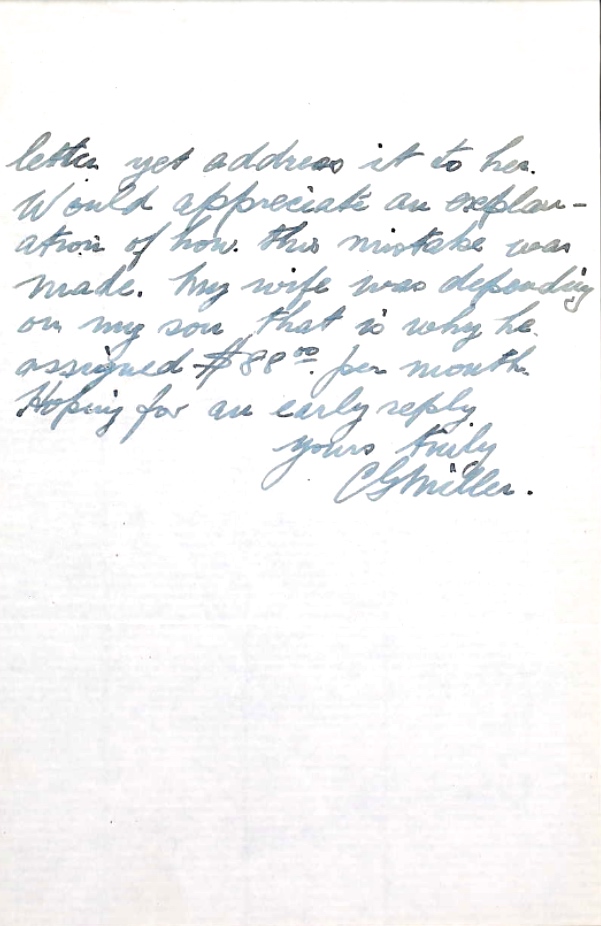 letter yet address it to her.
Would appreciate an explan-
ation of how this mistake was
made. My wife was depending
on my son that is why he
assigned $88.00 per month.
Hoping for an early reply
yours truly
CGMiller.